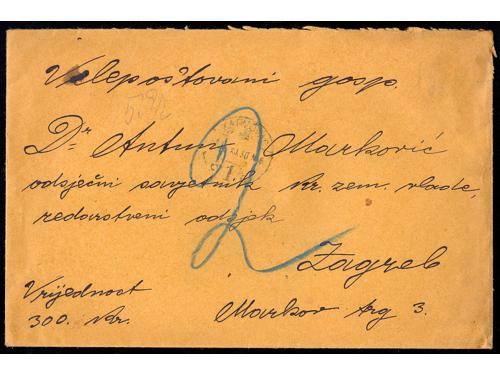 Velepoštovani gosp.
Dr Antun Marković
odsječni savjetnik kr. zem. vlade,
redarstveni odsjek
Zagreb
Vrijednost
300. Kr.
Markov trg 3.
2